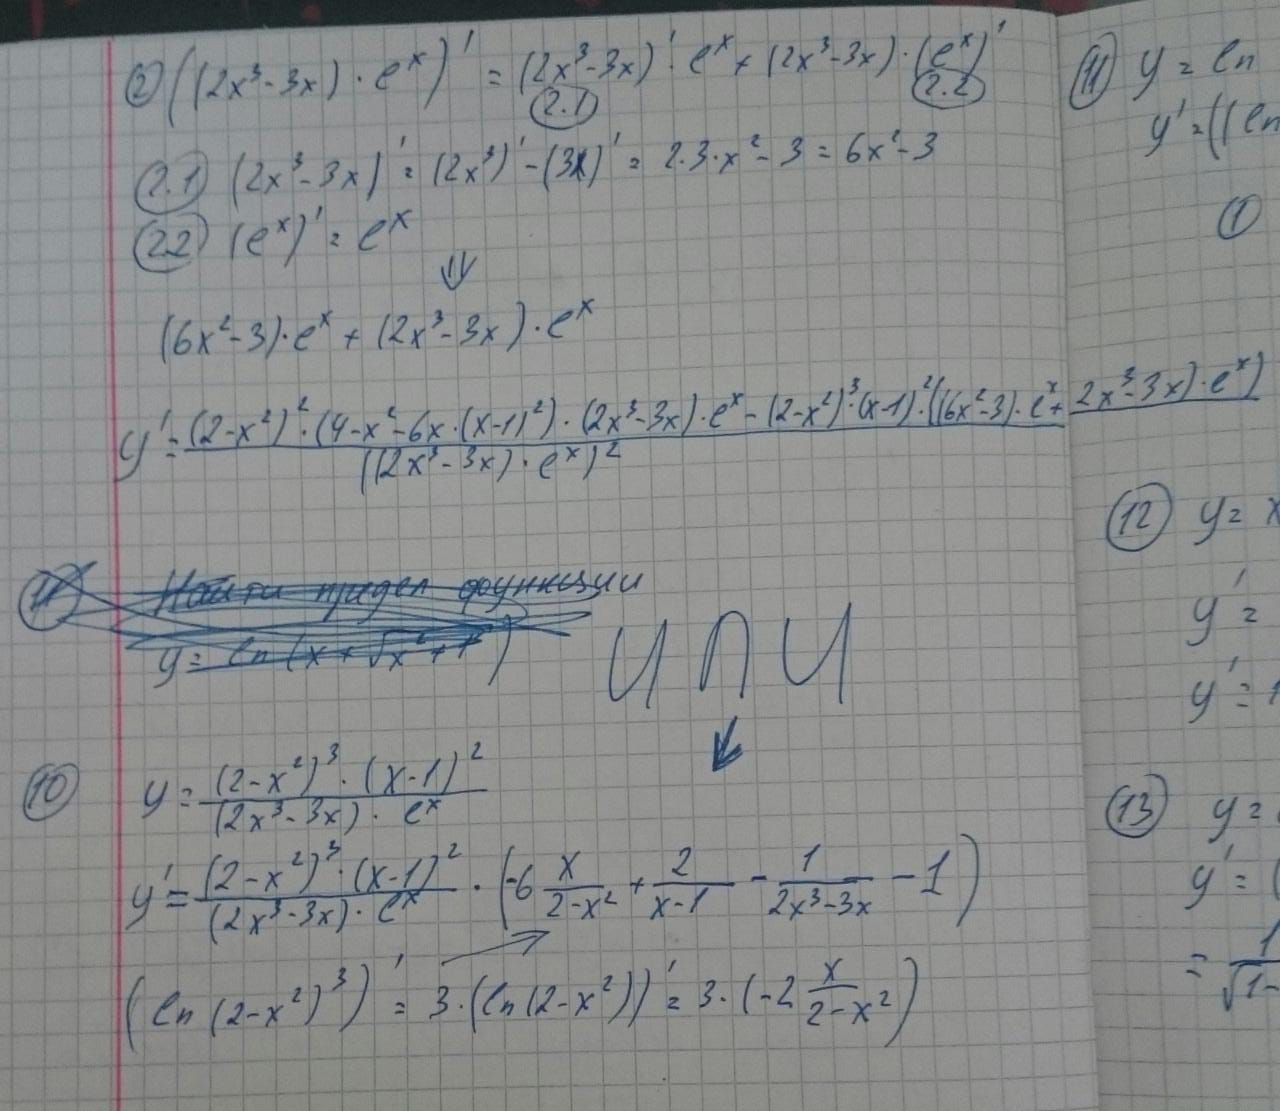 ② ((2x³-3x)·eˣ)' = (2x³-3x)'·eˣ + (2x³-3x)·(eˣ)'
2.1 2.2
2.1 (2x³-3x)' = (2x³)' - (3x)' = 2·3·x² - 3 = 6x² - 3
2.2 (eˣ)' = eˣ
⇓
(6x²-3)·eˣ + (2x³-3x)·eˣ
y' = \frac{(2-x²)²·(4-x²-6x·(x-1)²)·(2x³-3x)·eˣ - (2-x²)³·(x-1)²·((6x²-3)·eˣ + 2x³-3x)·eˣ)}{((2x³-3x)·eˣ)²}
Найти предел функции
y = ln(x+√x²+1)
ИЛИ
↓
⑩ y = \frac{(2-x²)³·(x-1)²}{(2x³-3x)·eˣ}
y' = \frac{(2-x²)³·(x-1)²}{(2x³-3x)·eˣ} · (-6 \frac{x}{2-x²} + \frac{2}{x-1} - \frac{1}{2x³-3x} - 1)
(ln(2-x²)³)' = 3·(ln(2-x²))' = 3·(-2 \frac{x}{2-x²})
⑪ y = ln
y' = ((ln
①
⑫ y = x
y' =
y' = 1
⑬ y =
y' = (
= \frac{1}{√1-